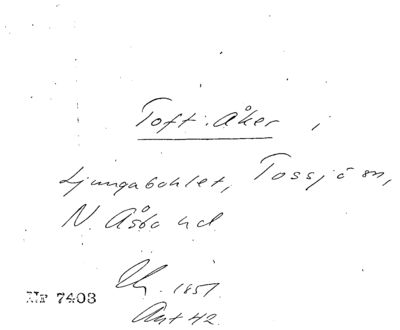 Toft: åker i
Ljungabohlet, Tossjö sn,
N. Åsbo hd
Uh. 1851.
Akt 42.
Nr 7403